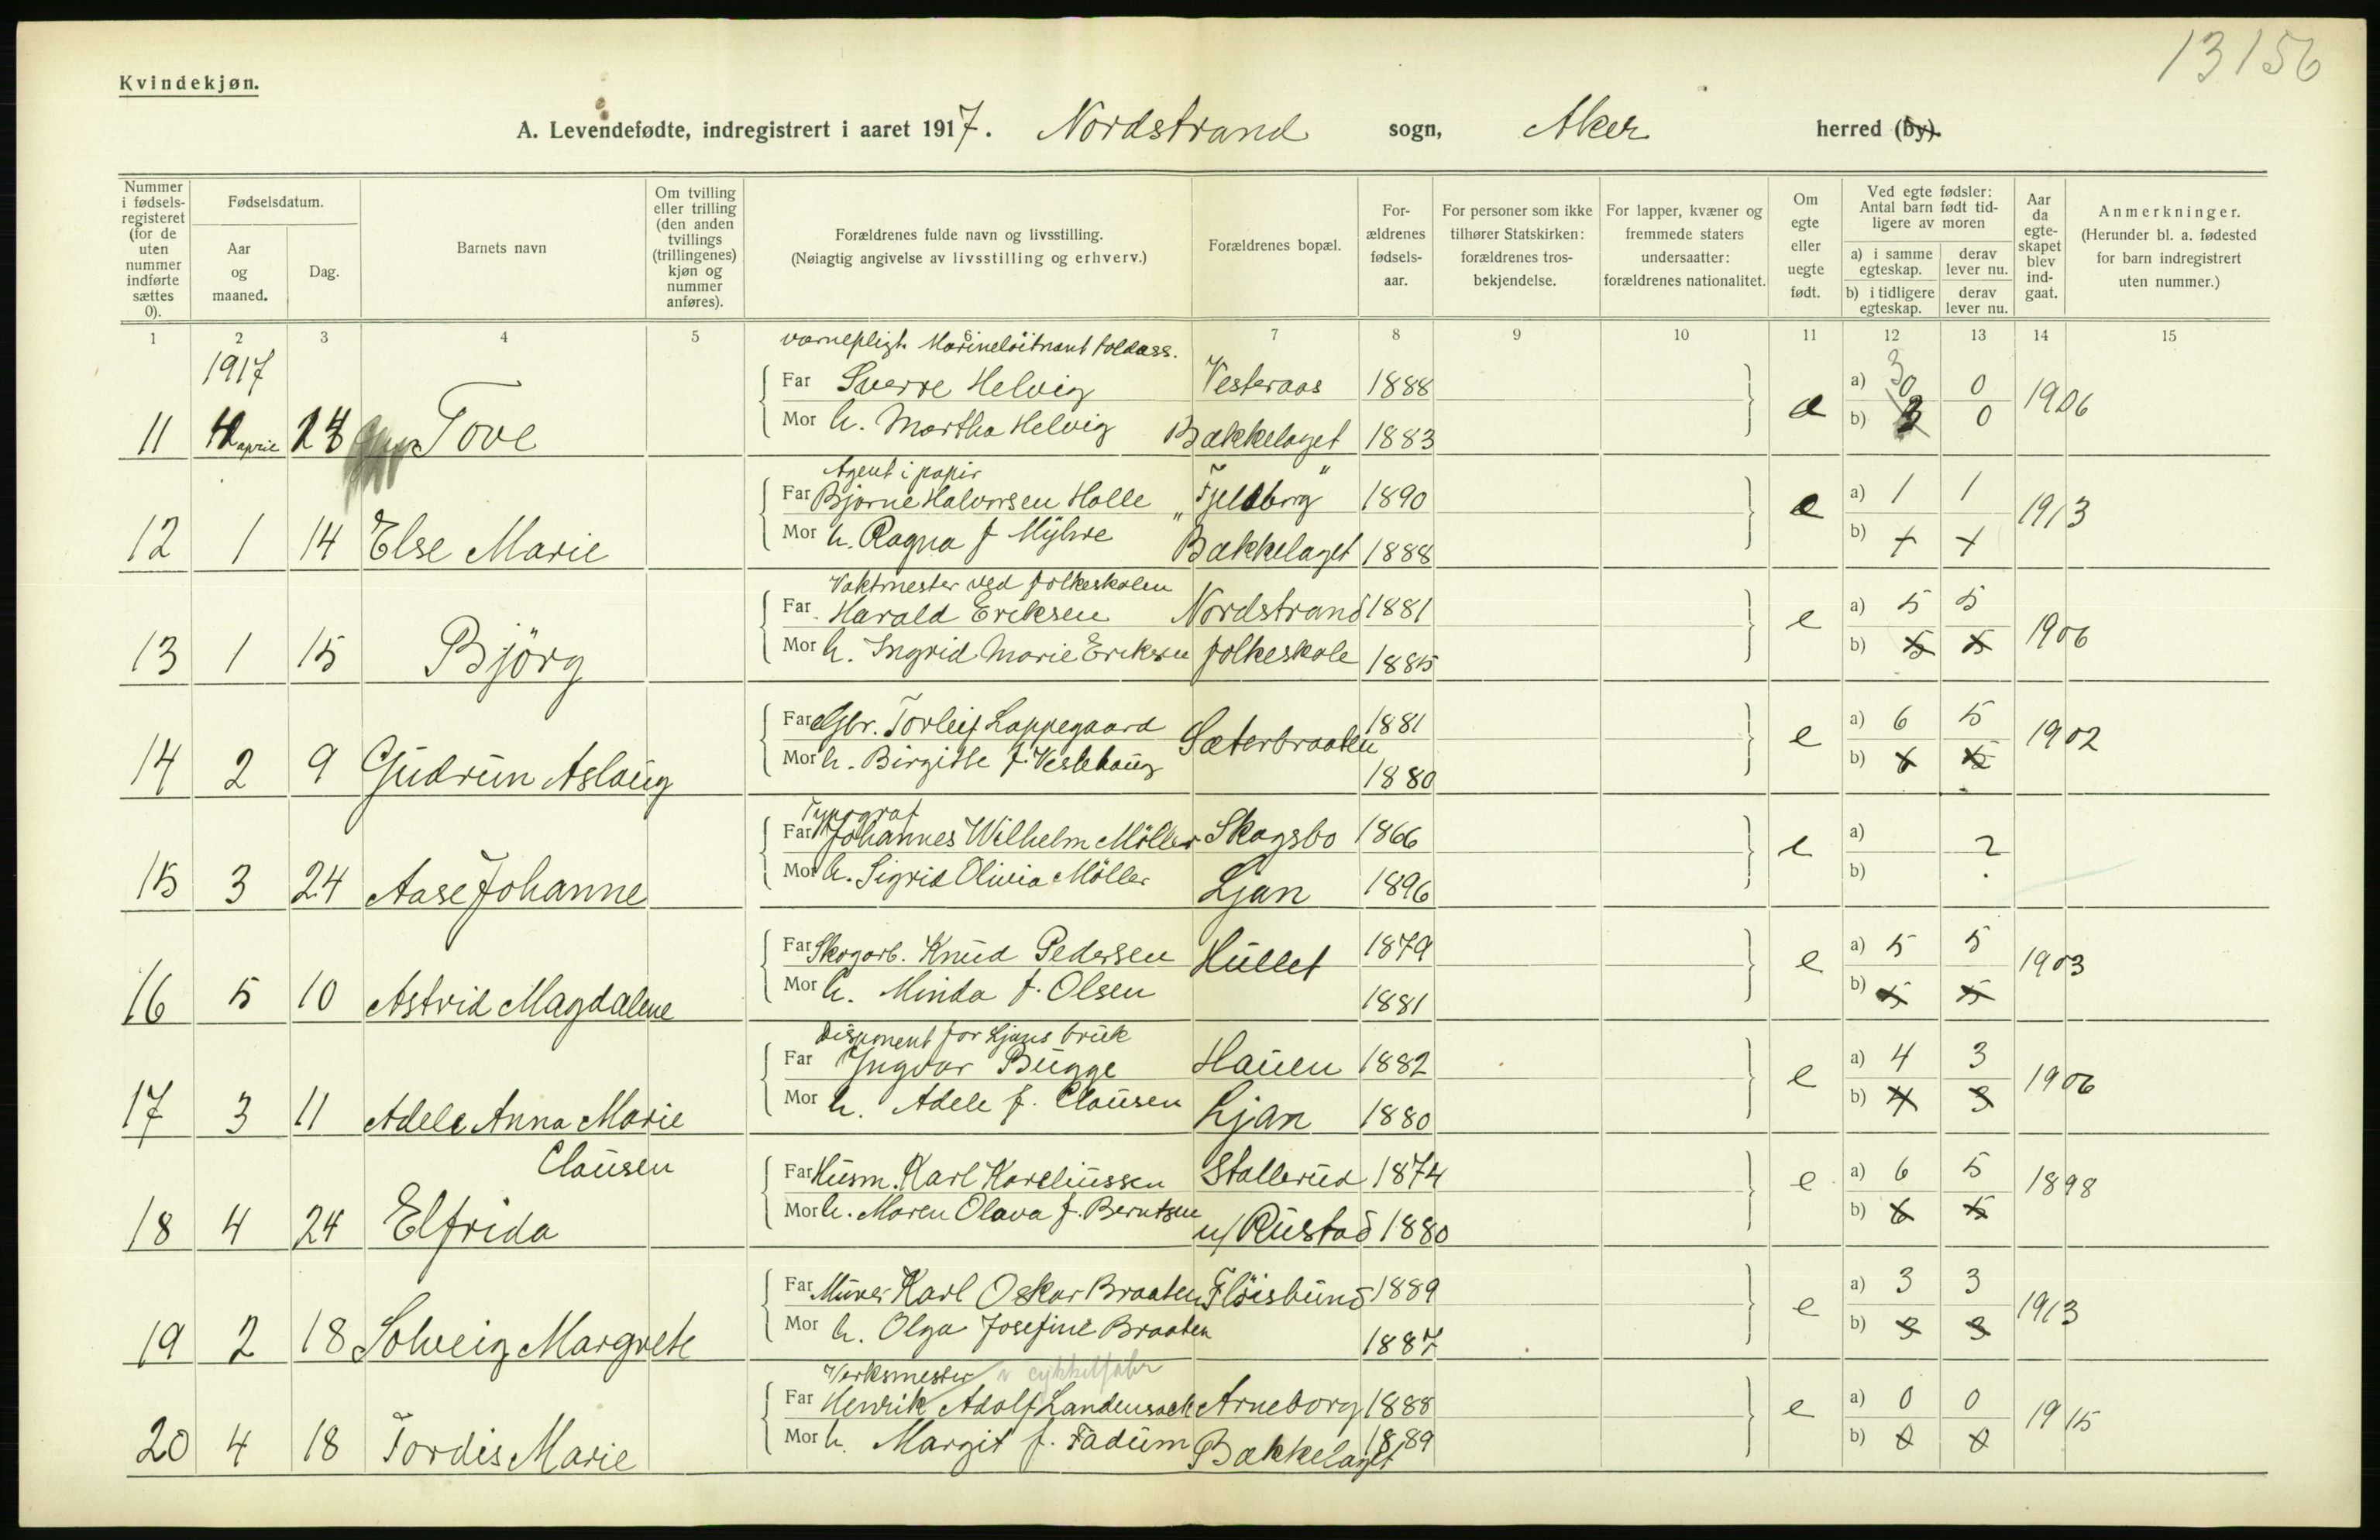 13156
Kvindekjøn.
A. Levendefødte, indregistrert i aaret 1917. Nordstrand sogn, Aker herred (by).
Nummer i fødselsregisteret (for de uten nummer indførte sættes 0).
Fødselsdatum.
Aar og maaned.
Dag.
Barnets navn
Om tvilling eller trilling (den anden tvillings (trillingenes) kjøn og nummer anføres).
Forældrenes fulde navn og livsstilling.
(Nøiagtig angivelse av livsstilling og erhverv.)
Forældrenes bopæl.
Forældrenes fødselsaar.
For personer som ikke tilhører Statskirken: forældrenes trosbekjendelse.
For lapper, kvæner og fremmede staters undersaatter: forældrenes nationalitet.
Om egte eller uegte født.
Ved egte fødsler: Antal barn født tidligere av moren
a) i samme egteskap.
derav lever nu.
b) i tidligere egteskap.
derav lever nu.
Aar da egteskapet blev indgaat.
Anmerkninger.
(Herunder bl. a. fødested for barn indregistrert uten nummer.)
1 2 3 4 5 6 7 8 9 10 11 12 13 14 15
1917
værnepligt. Marineløitnant toldass.
Far Sverre Helvig Vesteraas 1888 a) 3 0 0 1906
11 april Tove Mor h. Martha Helvig Bækkelaget 1883 e b) 0
Agent i papir
Far Bjarne Halvorsen Holle "Fjeldborg" 1890 a) 1 1 1913
12 1 14 Else Marie Mor h. Ragna f Myhre Bækkelaget 1888 e b) + +
Vaktmester ved folkeskolen
Far Harald Eriksen Nordstrand 1881 a) 5 5 1906
13 1 15 Björg Mor h. Ingrid Marie Eriksen folkeskole 1885 e b) 5 5
Far Gbr. Torleif Lappegaard Sæterbraaten 1881 a) 6 5 1902
14 2 9 Gudrun Aslaug Mor h. Birgitte f. Veslehaug 1880 e b) 6 5
Typograf
Far Johannes Wilhelm Möller Skogsbo 1866 a) ?
15 3 24 Aase Johanne Mor h. Sigrid Olivia Möller Ljan 1896 e b)
Far Skogarb. Knud Pedersen Hullet 1879 a) 5 5 1903
16 5 10 Astrid Magdalene Mor h. Minda f. Olsen 1881 e b) 5 5
Disponent for Ljans bruk
Far Ingvar Bugge Hauen 1882 a) 4 3 1906
17 3 11 Adele Anna Marie Mor h. Adele f. Clausen Ljan 1880 e b) 4 3
Clausen
Far Husm. Karl Kareliussen Stallerud 1874 a) 6 5 1898
18 4 24 Elfrida Mor h. Maren Olava f. Berntsen u/ Rustad 1880 e b) 6 5
Far Murer Karl Oskar Braaten Flöisbund 1889 a) 3 3 1913
19 2 18 Solveig Margrete Mor h. Olga Josefine Braaten 1887 e b) 3 3
Verksmester v cykkelfabr
Far Henrik Adolf Landensack Arneborg 1888 a) 0 0 1915
20 4 18 Tordis Marie Mor h. Margit f. Fadum Bækkelaget 1889 e b) 0 0